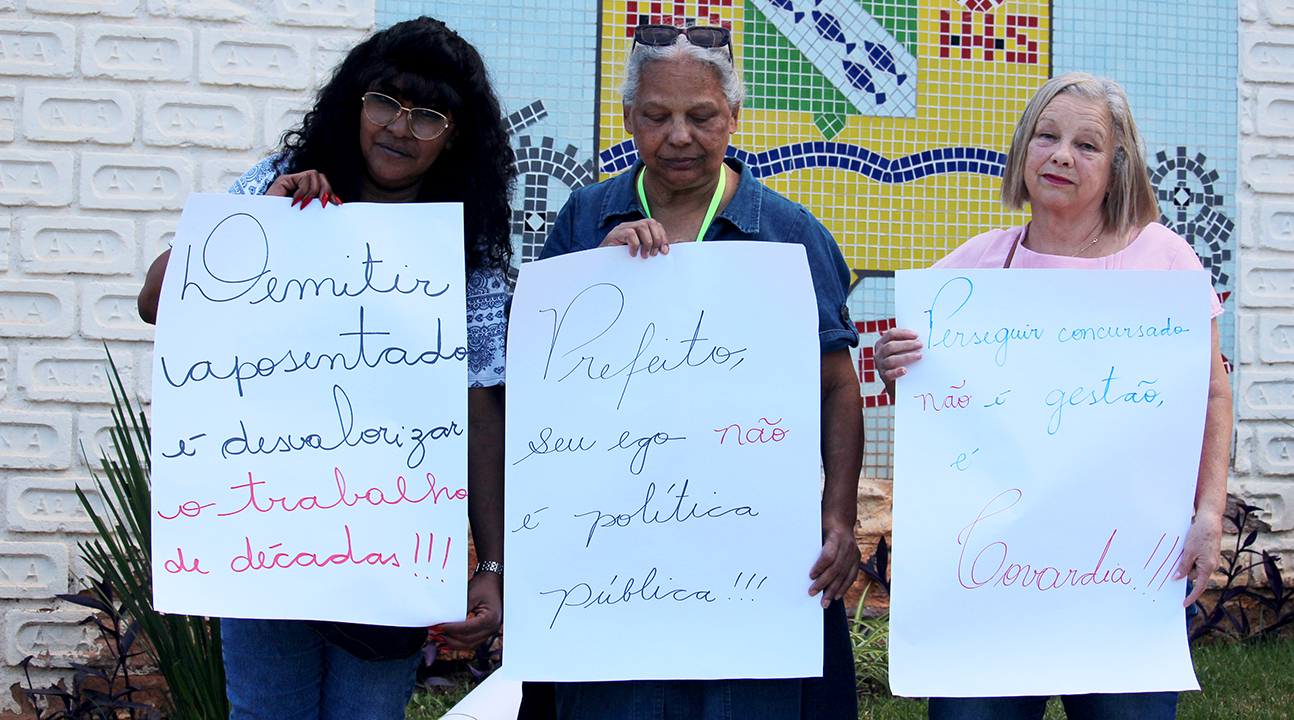 Demitir
aposentado
é desvalorizar
o trabalho
de décadas!!!
Prefeito,
seu ego não
é política
pública!!!
Perseguir concursado
não é gestão,
é
Covardia!!!